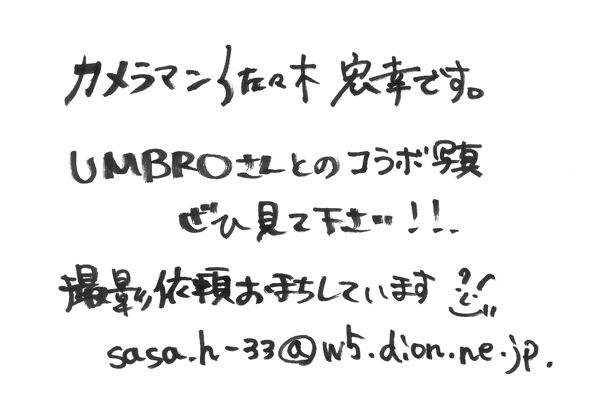 カメラマン佐々木 宏幸です。
UMBROさんとのコラボ写真
ぜひ見て下さい!!
撮影依頼おまちしています
sasa.h-33@w5.dion.ne.jp.